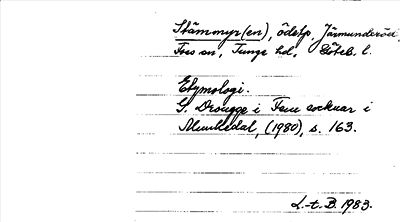 Stämmyr(en), ödetp, Järmunderöd,
Foss sn, Tunge hd, Göteb. l.
Etymologi.
G. Drougge i Fem socknar i
Munkedal, (1980), s. 163.
L-t. B. 1983.